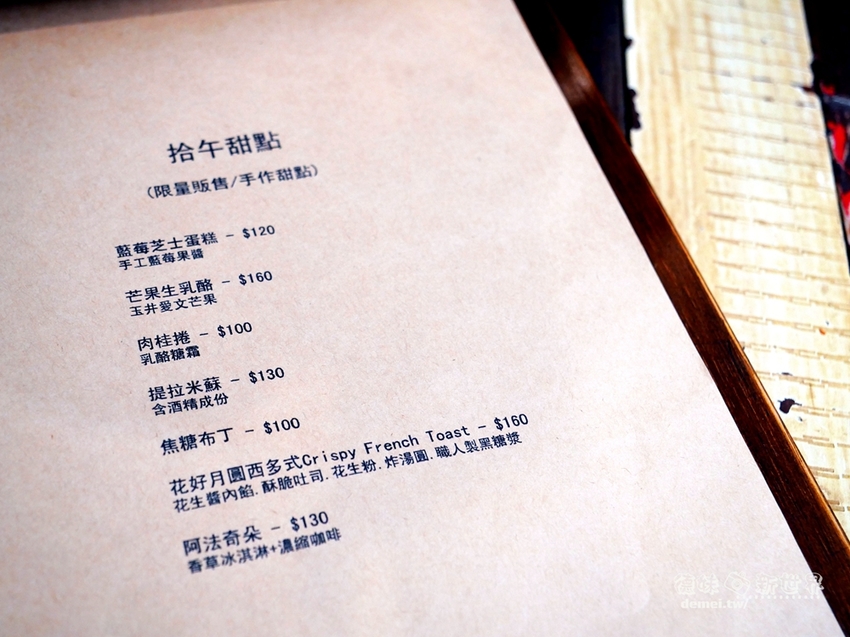 拾午甜點
(限量販售/手作甜點)
藍莓芝士蛋糕 - $120
手工藍莓果醬
芒果生乳酪 - $160
玉井愛文芒果
肉桂捲 - $100
乳酪糖霜
提拉米蘇 - $130
含酒精成份
焦糖布丁 - $100
花好月圓西多式Crispy French Toast - $160
花生醬內餡.酥脆吐司.花生粉.炸湯圓.職人製黑糖漿
阿法奇朵 - $130
香草冰淇淋+濃縮咖啡
新世界
demei.tw/